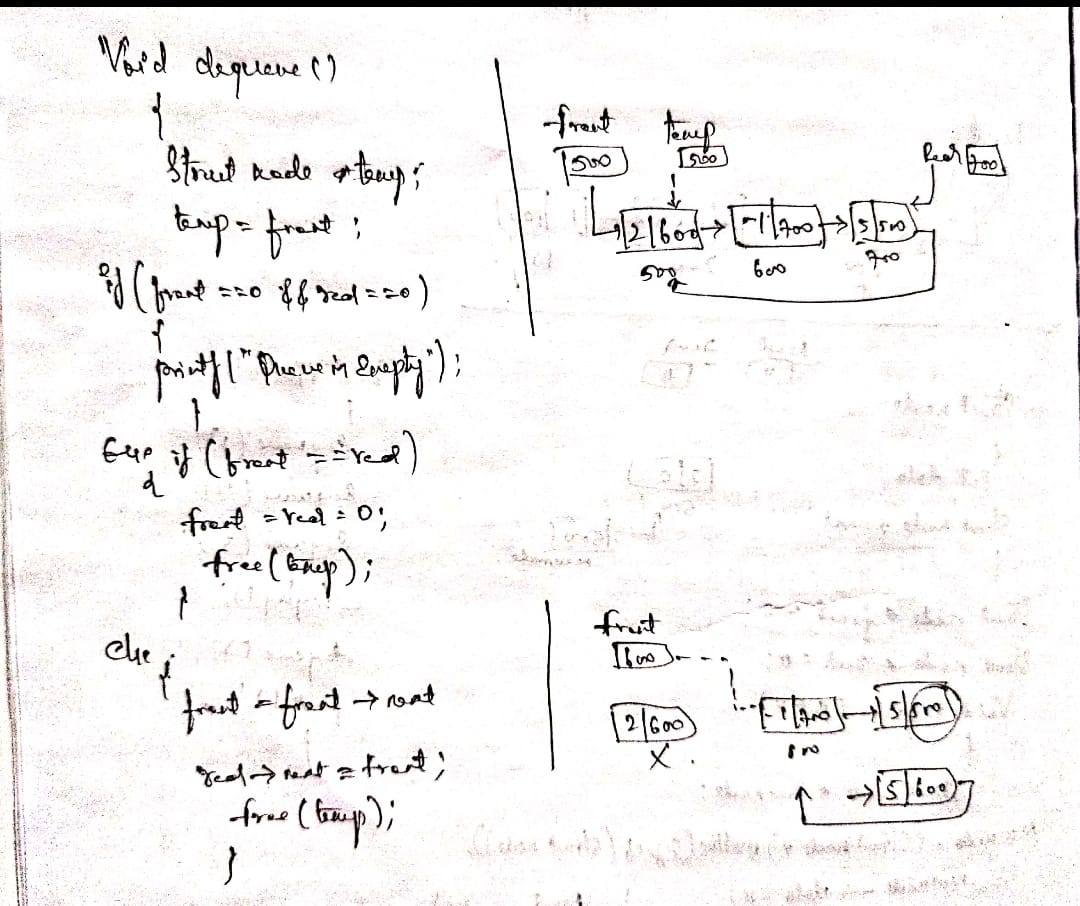 Void dequeue ()
{
Struct node *temp;
temp = front;
if (front ==0 && rear ==0)
{
printf ("Queue is Empty");
}
Else if (front == rear)
{
front = rear = 0;
free (temp);
}
else
{
front = front → next
rear → next = front;
free (temp);
}
front temp
500 500
Rear 700
2 600 → -1 700 → 5 500
500 600 700
front
600
2 600
X
-1 700 → 5 500
→ 5 600